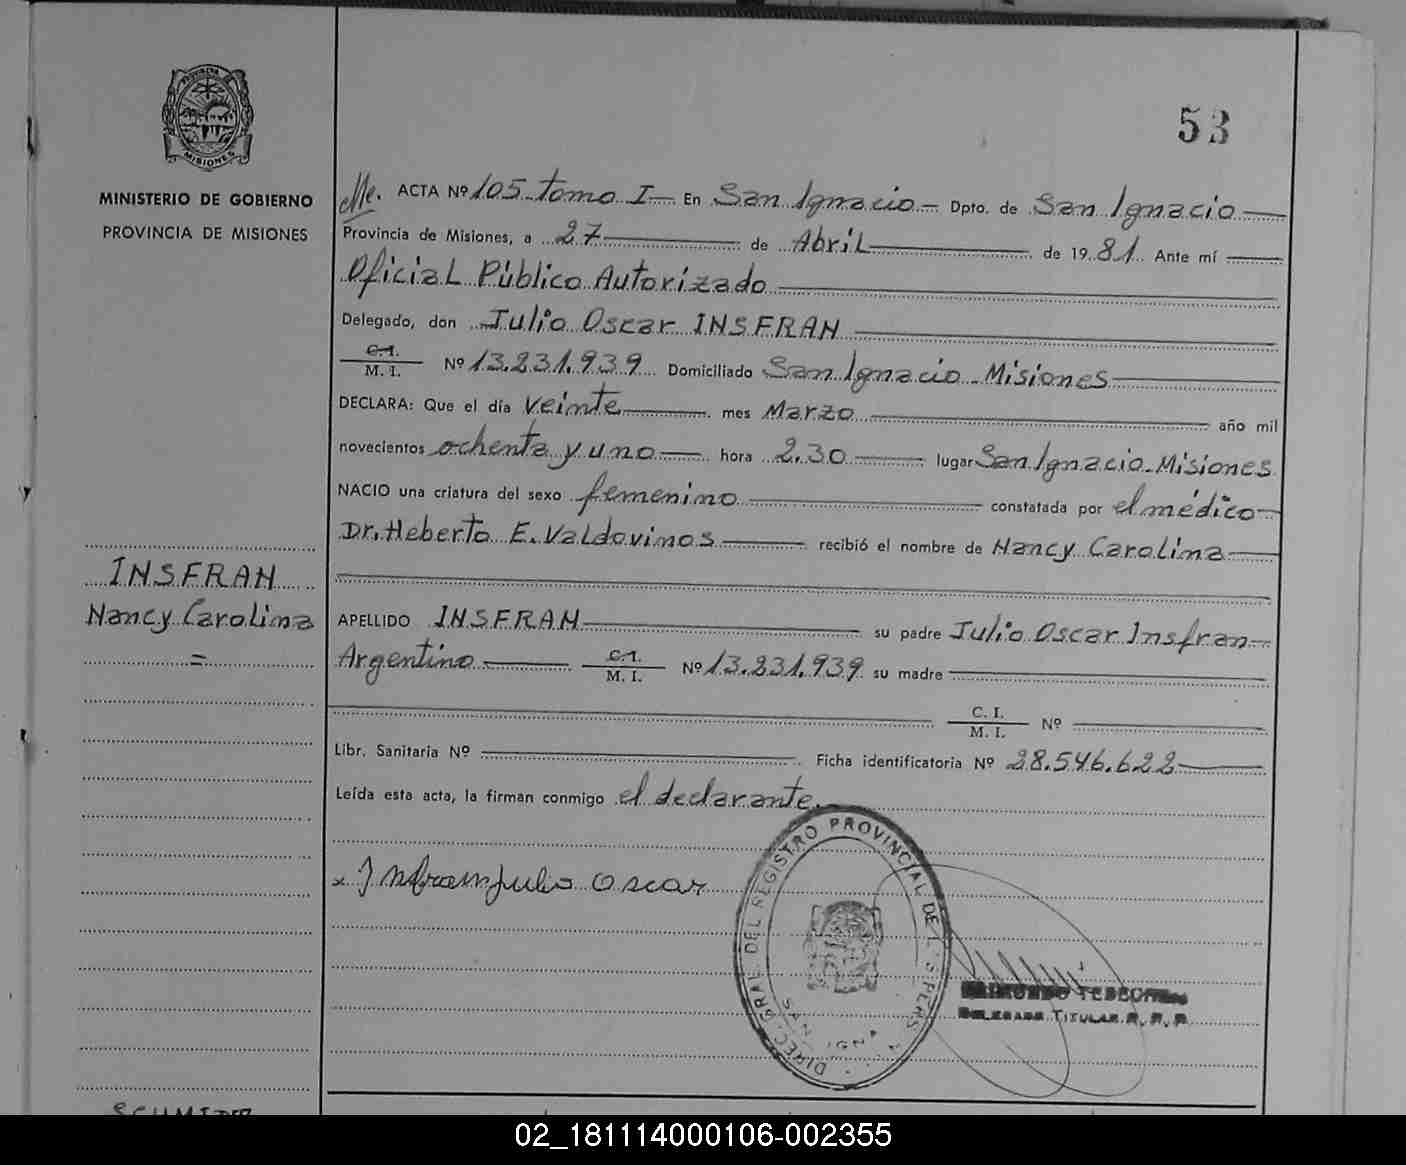 PROVINCIA DE
MISIONES
MINISTERIO DE GOBIERNO
PROVINCIA DE MISIONES
53
ACTA Nº 105 tomo I En San Ignacio Dpto. de San Ignacio
Provincia de Misiones, a 27 de Abril de 1981 Ante mí
Oficial Público Autorizado
Delegado, don Julio Oscar INSFRAN
C.I.
M. I. Nº 13.231.939 Domiciliado San Ignacio - Misiones
DECLARA: Que el día veinte mes Marzo año mil
novecientos ochenta y uno hora 2.30 lugar San Ignacio - Misiones
NACIO una criatura del sexo femenino constatada por el médico
Dr. Heberto E. Valdovinos recibió el nombre de Nancy Carolina
INSFRAN
Nancy Carolina
=
APELLIDO INSFRAN su padre Julio Oscar Insfran
Argentino C.I.
M. I. Nº 13.231.939 su madre
C. I.
M. I. Nº
Libr. Sanitaria Nº Ficha identificatoria Nº 28.546.622
Leída esta acta, la firman conmigo el declarante.
x Insfran Julio Oscar
DIREC. GRAL. DEL REGISTRO PROVINCIAL DE L S PERS
SAN IGNA
RAIMUNDO
DELEGADO TITULAR R. P. P.
02_181114000106-002355